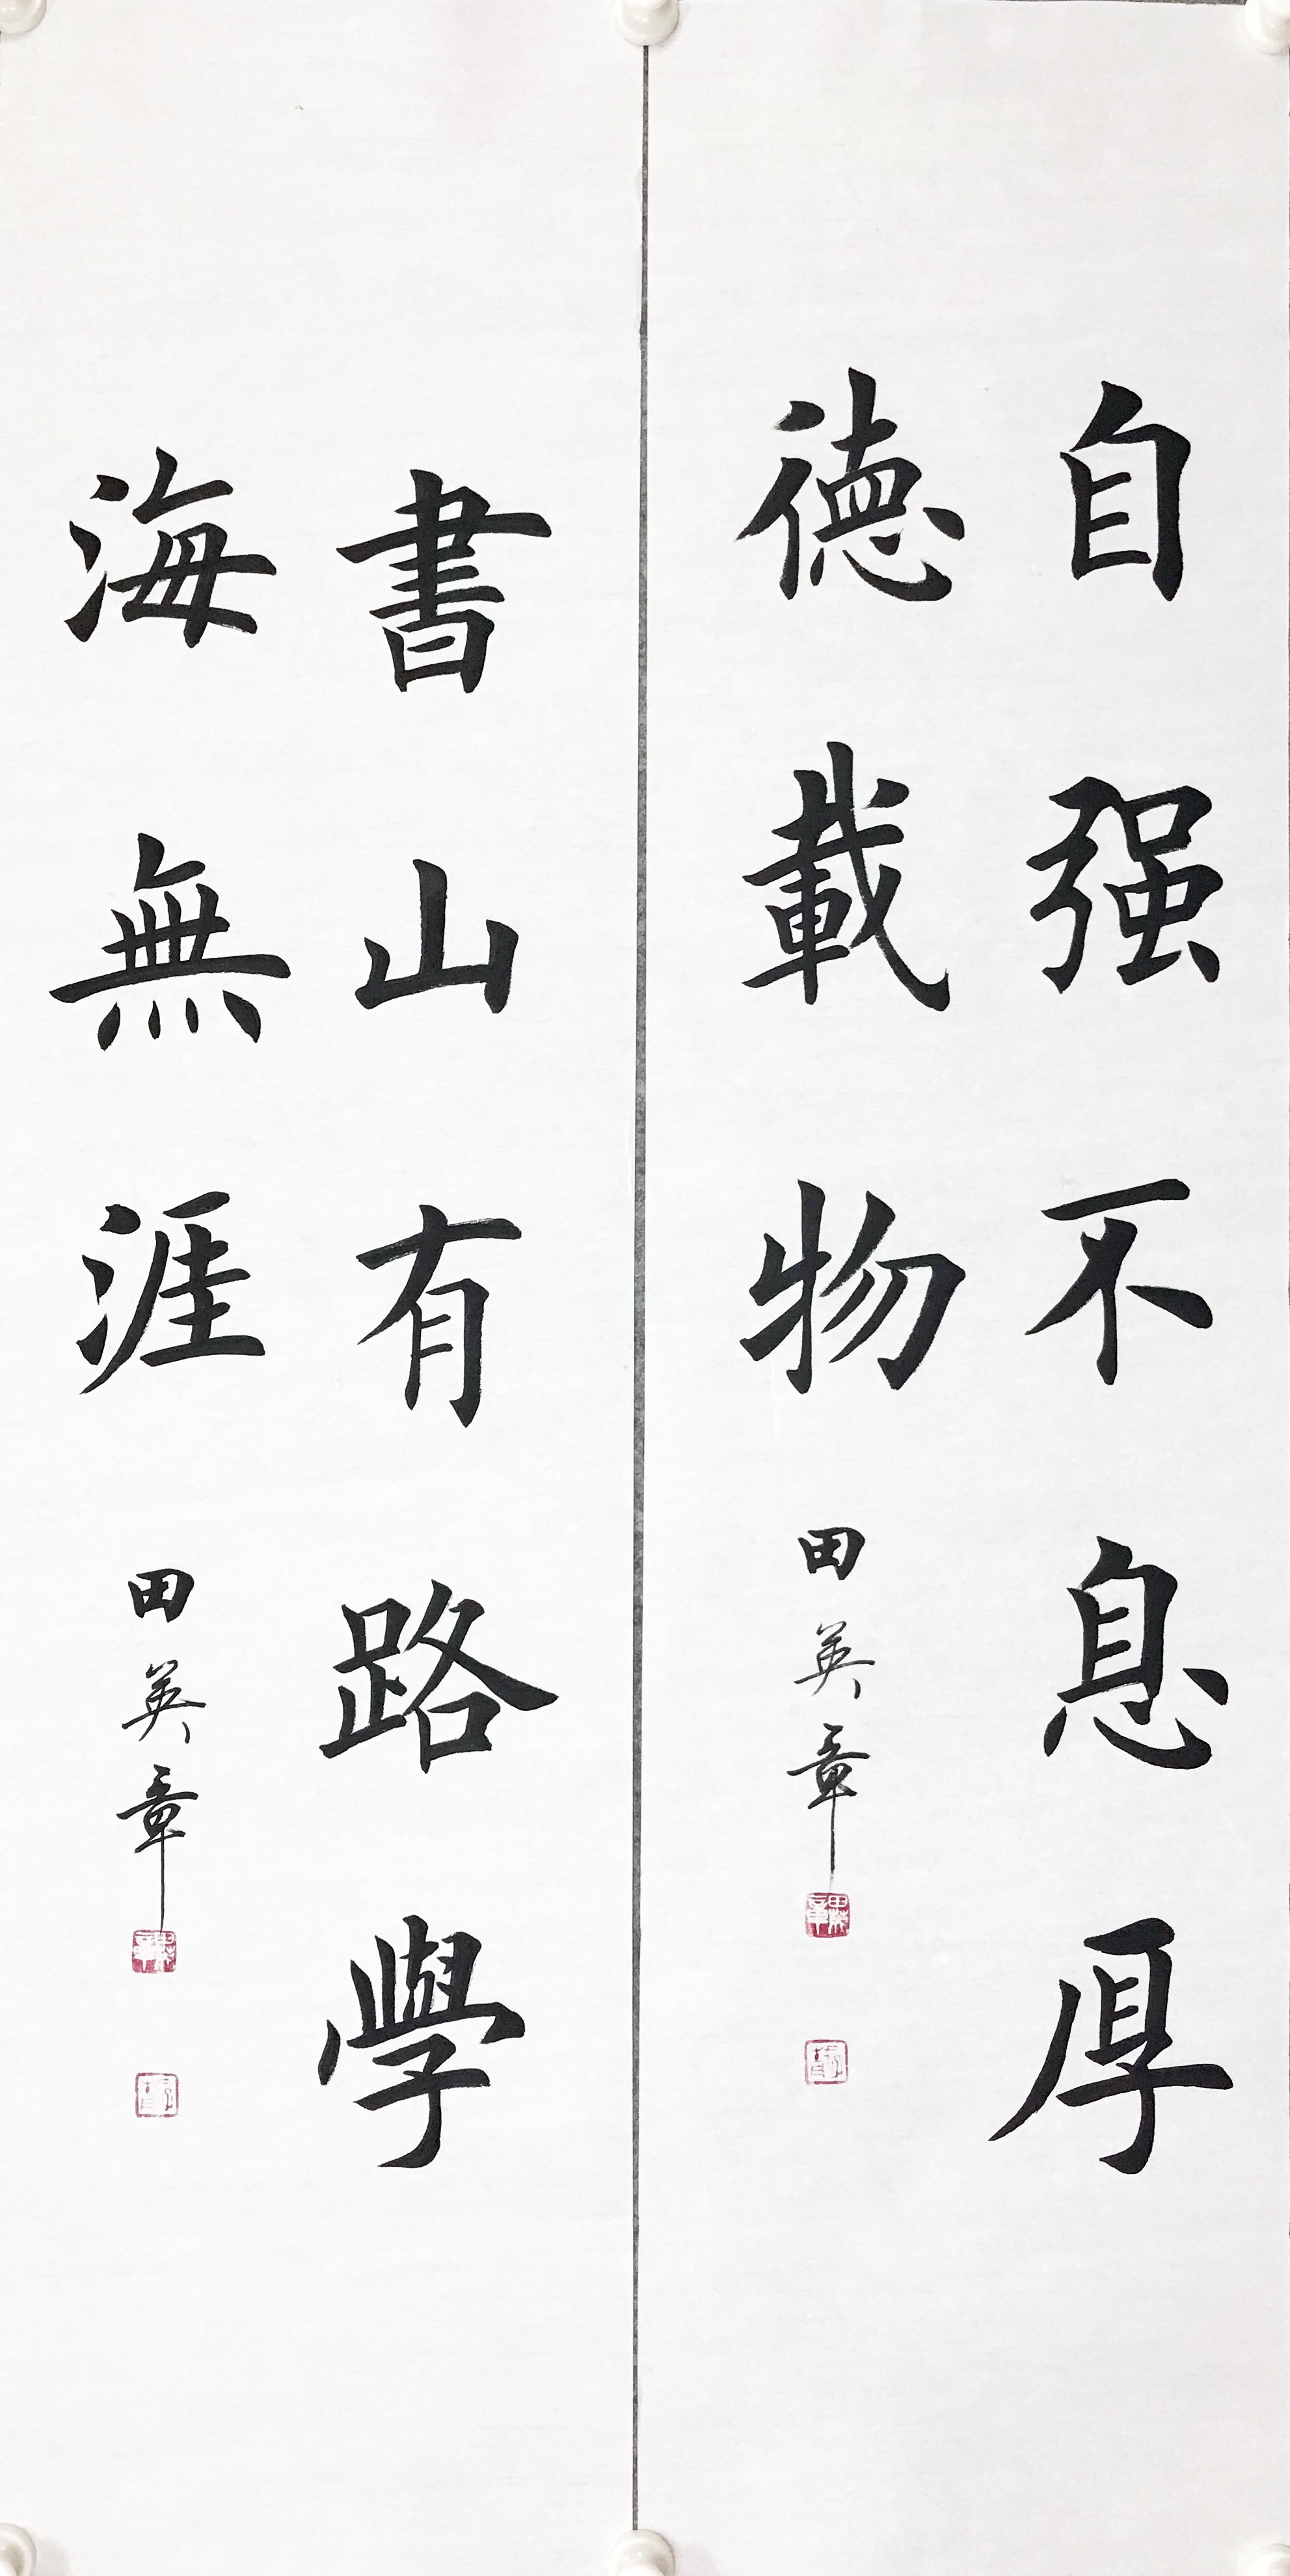 自强不息厚
德載物
田英章
書山有路學
海無涯
田英章